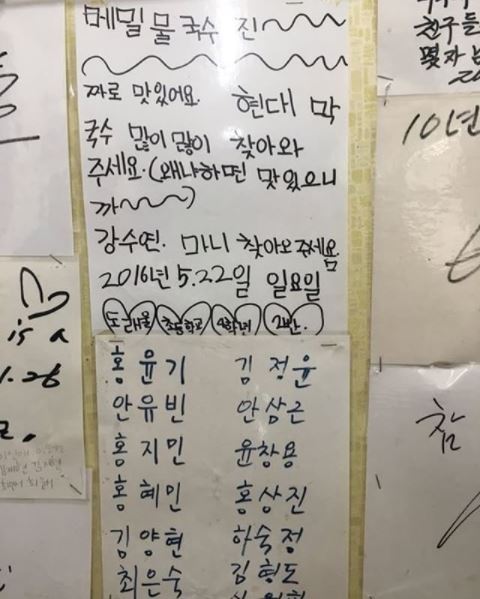 메밀 물 국수 진~~~
짜로 맛있어요. 현대 막
국수 많이 많이 찾아와
주세요. (왜냐하면 맛있으니
까~~~)
강수연. 마니 찾아오주세요
2016년 5.22일 일요일
초등학교 4학년 2반.
홍윤기 김정윤
안유빈 안삼근
홍지민 윤창용
홍혜민 홍상진
김양현 하숙정
최은숙 김형도
친구들
몇자
10년
is a
1.26
참